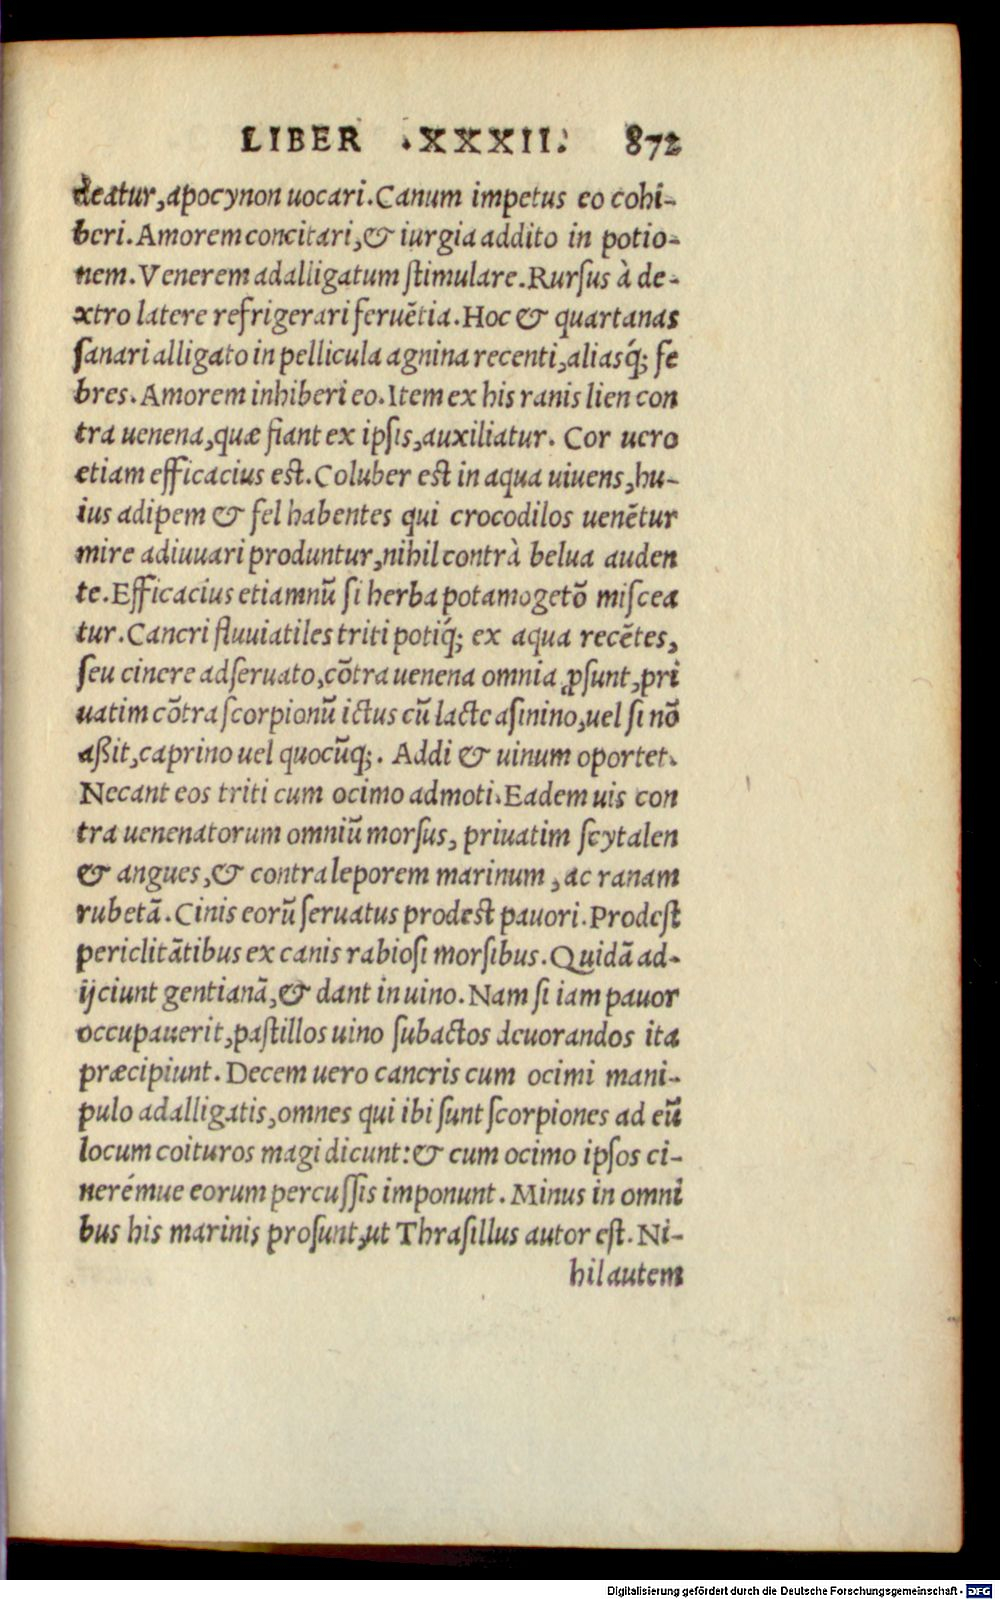 LIBER .XXXII. 872
deatur, apocynon uocari. Canum impetus eo cohi-
beri. Amorem concitari, & iurgia addito in potio-
nem. Venerem adalligatum ſtimulare. Rurſus à de-
xtro latere refrigerari feruẽtia. Hoc & quartanas
ſanari alligato in pellicula agnina recenti, aliasq́; fe
bres. Amorem inhiberi eo. Item ex his ranis lien con
tra uenena, quæ fiant ex ipſis, auxiliatur. Cor uero
etiam efficacius eſt. Coluber eſt in aqua uiuens, hu-
ius adipem & fel habentes qui crocodilos uenẽtur
mire adiuuari produntur, nihil contrà belua auden
te. Efficacius etiamnũ ſi herba potamogetõ miſcea
tur. Cancri fluuiatiles triti potiq́; ex aqua recẽtes,
ſeu cinere adſeruato, cõtra uenena omnia ꝓſunt, pri
uatim cõtra ſcorpionũ ictus cũ lacte aſinino, uel ſi nõ
aßit, caprino uel quocũq;. Addi & uinum oportet.
Necant eos triti cum ocimo admoti. Eadem uis con
tra uenenatorum omniũ morſus, priuatim ſcytalen
& angues, & contra leporem marinum, ac ranam
rubetã. Cinis eorũ ſeruatus prodeſt pauori. Prodeſt
periclitãtibus ex canis rabioſi morſibus. Quidã ad-
ijciunt gentianã, & dant in uino. Nam ſi iam pauor
occupauerit, paſtillos uino ſubactos deuorandos ita
præcipiunt. Decem uero cancris cum ocimi mani-
pulo adalligatis, omnes qui ibi ſunt ſcorpiones ad eũ
locum coituros magi dicunt: & cum ocimo ipſos ci-
nerémue eorum percuſſis imponunt. Minus in omni
bus his marinis proſunt, ut Thraſillus autor eſt. Ni-
hil autem
Digitalisierung gefördert durch die Deutsche Forschungsgemeinschaft - DFG